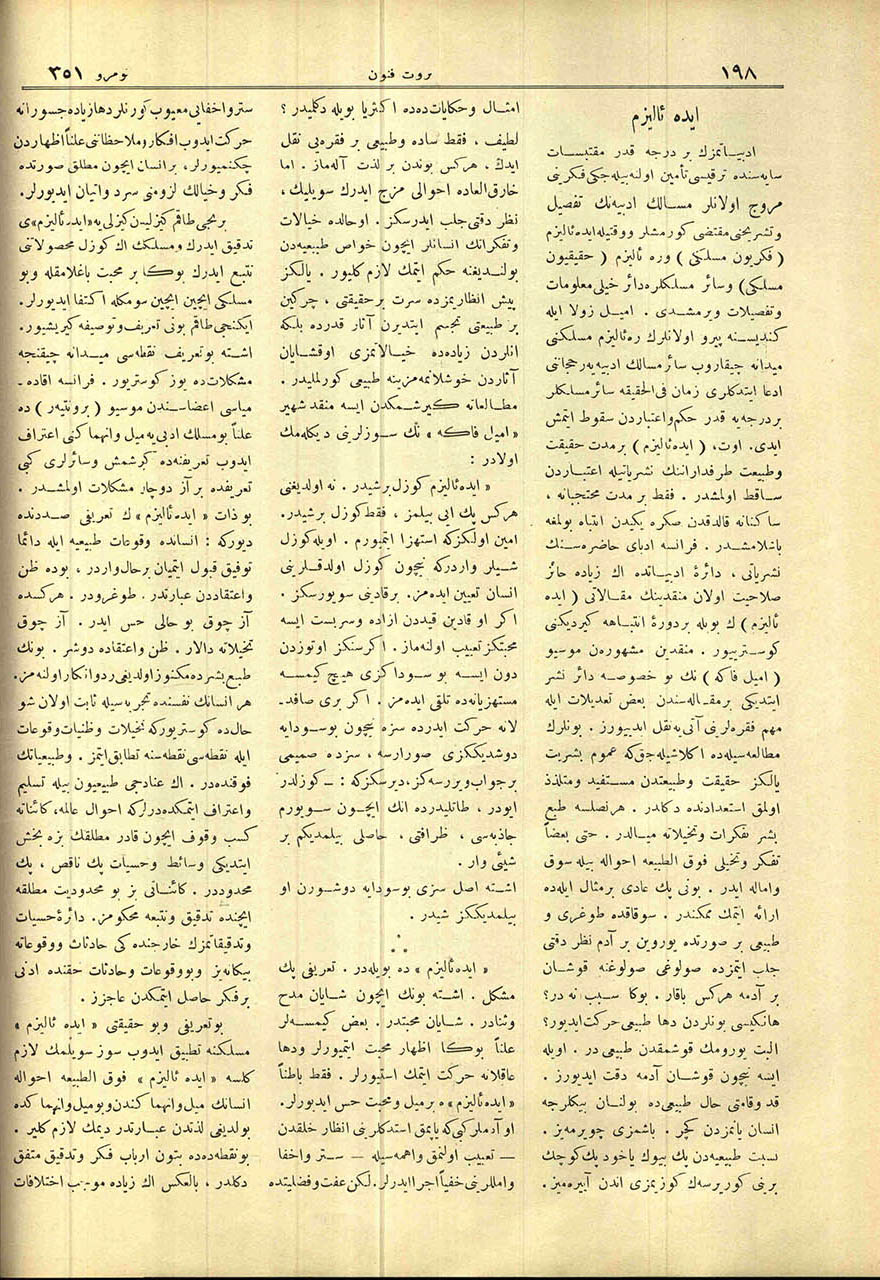 ١٩٨
ثروت فنون
نومرو ٣٥١
ایده ئالیزم
ادبیاتمزك بر درجه قدر مقتبسات
سایه‌سنده ترقیسی تأمین اولنه‌بیله‌جکی فکرینی
مروج اولانلر مسالك ادبیه‌نك تفصیل
وتشریحنی مقتضی کورمشلر ووقتیله ایده‌ئالیزم
( فکریون مسلکی ) وره ئالیزم ( حقیقیون
مسلکی) وسائر مسلکلره‌دائر خیلی معلومات
وتفصیلات ویرمشدی . امیل زولا ایله
کندیسنه پیرو اولانلرك ره‌ئالیزم مسلکنی
میدانه چیقاروب سائر مسالك ادبیه‌یه رجحاننی
ادعا ایتدکلری زمان فی‌الحقیقه سائر مسلکلر
بردرجه‌یه قدر حکم‌واعتباردن سقوط ایتمش
ایدی. اوت، ( ایده‌ئالیزم ) برمدت حقیقت
وطبیعت طرفداراننك نشریاتیله اعتباردن
ساقط اولمشدر . فقط بر مدت محتجبانه ،
ساکتانه قالدقدن صکره یکیدن انتباه بولمغه
باشلامشدر . فرانسه ادبای حاضره‌سنك
نشریاتی ، دائرهٔ ادبیاتده اك زیاده حائز
صلاحیت اولان منقدینك مقالاتی ( ایده
ئالیزم ) ك بویله بردورهٔ انتباهه کیردیکنی
کوسترییور . منقدین مشهوره‌دن موسیو
( امیل فاکه ) نك بو خصوصه دائر نشر
ایتدیکی برمقاله‌سندن بعض تعدیلات ایله
مهم فقره‌لرینی آتی‌یه نقل ایدییورز . بونلرك
مطالعه‌سیله‌ده اکلاشیله‌جق‌که عموم بشریت
یالکز حقیقت وطبیعتدن مستفید ومتلذذ
اولمق استعدادنده دکلدر. هرنصلسه طبع
بشر تفکرات وتخیلاته میالدر. حتی بعضاً
تفکر وتخیلی فوق الطبیعه احواله بیله سوق
واماله ایدر . بونی پك عادی برمثال ایله‌ده
ارائه ایتمك ممکندر . سوقاقده طوغری و
طبیعی بر صورتده یوروین بر آدم نظر دقتی
جلب ایتمزده صولوغی صولوغنه قوشان
بر آدمه هرکس باقار . بوکا سبب نه در؟
هانکیسی بونلردن دها طبیعی حرکت‌ایدیور؟
البت یورومك قوشمقدن طبیعی در . اویله
ایسه نیچون قوشان آدمه دقت ایدیورز .
قد وقامتی حال طبیعی‌ده بولنان بیکلرجه
انسان یانمزدن کچر . باشمزی چویرمه‌یز .
نسبت طبیعیه‌دن پك بیوك یاخود پك‌کوچك
برینی کوررسه‌ك کوزیمزی اندن آییره‌میز.
امثال وحکایات‌ده‌ده اکثریا بویله دکلیدر ؟
لطیف ، فقط ساده وطبیعی بر فقره‌یی نقل
ایدك، هرکس بوندن بر لذت آله‌ماز. اما
خارق‌العاده احوالی مزج ایدرك سویلیك ،
نظر دقتی جلب ایدرسکز. اوحالده خیالات
وتفکراتك انسانلر ایچون خواص طبیعیه‌دن
بولندیغنه حکم ایتمك لازم کلیور. یالکز
پیش انظاریمزده سرت برحقیقتی ، چرکین
بر طبیعتی تجسم ایتدیرن آثار قدرده بلکه
انلردن زیاده‌ده خیالاتمزی اوقشایان
آثاردن خوشلانمه‌مزینه طبیعی کورلملیدر.
مطالعاته کیرشمکدن ایسه منقد شهیر
« امیل فاکه » نك سوزلرینی دیکله‌مك
اولادر :
« ایده‌ئالیزم کوزل برشیدر. نه اولدیغنی
هرکس پك ایی بیلمز ، فقط کوزل برشیدر.
امین اولکزکه استهزا ایتمیورم . اویله کوزل
شیلر واردرکه نیچون کوزل اولدقلرینی
انسان تعیین ایده‌مز. برقادینی سویورسکز.
اکر او قادین قیددن ازاده وسربست ایسه
محبتکز تعییب اولنه‌ماز . اکرسنکز اوتوزدن
دون ایسه بو سوداکزی هیچ کیمسه
مستهزیانه‌ده تلقی ایده‌مز. اکر بری صافد-
لانه حرکت ایدرده سزه نیچون بوسودایه
دوشدیککزی صورارسه ، سزده صمیمی
برجواب ویررسه‌کز، دیرسکزکه : ـ کوزلدر
ایودر ، طاتلیدرده انك ایچون سویورم
جاذبه‌سی ، ظرافتی ، حاصلی بیلمدیکم بر
شیئی وار .
اشته اصل سزی بوسودایه دوشورن او
بیلمدیککز شیدر .
⁂
« ایده‌ئالیزم » ده بویله‌در. تعریفی پك
مشکل . اشته بونك ایچون شایان مدح
وثنادر . شایان محبتدر. بعض کیمسه‌لر
علناً بوکا اظهار محبت ایتمیورلر ودها
عاقلانه حرکت ایتمك استیورلر . فقط باطناً
« ایده‌ئالیزم» ه برمیل ومحبت حس ایدیورلر.
اوآدملرکبی‌که یاپمق استدکلرینی انظار خلقدن
— تعییب اولنمق واهمه‌سیله — ستر واخفا
واملارینی خفیاً اجرا ایدرلر. لکن عفت وفضیلتده
ستر واخفایی معیوب کورنلر دها زیاده جسورانه
حرکت ایدوب افکار وملاحظاتنی علناً اظهاردن
چکنمیورلر، برانسان ایچون مطلق صورتده
فکر وخیالك لزومنی سرد واتیان ایدیورلر.
برنجی طاقم کنزلیدن کنزلی‌یه « ایده‌ئالیزم»ی
تدقیق ایدرك ومسلكك اك کوزل محصولاتنی
تتبع ایدرك بوکا بر محبت باغلامقله وبو
مسلکی ایچین ایچین سومکله اکتفا ایدیورلر.
ایکنجی طاقم بونی تعریف وتوصیفه کیریشیور.
اشته بوتعریف نقطه‌سی میدانه چیقنجه
مشکلات‌ده یوز کوستریور . فرانسه اقاده-
میاسی اعضاسندن موسیو ( برونتیه‌ر ) ده
علناً بومسلك ادبی‌یه میل وانهماکنی اعتراف
ایدوب تعریفنه‌ده کرشمش وسائرلری کبی
تعریفده بر آز دوچار مشکلات اولمشدر .
بوذات « ایده‌ئالیزم» ك تعریفی صددنده
دیورکه : انسانده وقوعات طبیعیه ایله دائما
توفیق قبول ایتمیان برحال واردر ، بوده ظن
واعتقاددن عبارتدر. طوغرودر . هرکسده
آز چوق بو حالی حس ایدر . آز چوق
تخیلاته دالار. ظن واعتقاده دوشر . بونك
طبع بشرده مکنوز اولدیغی رد وانکار اولنه‌مز.
هر انسانك نفسنده تجربه‌سیله ثابت اولان شو
حال‌ده کوستریورکه تخیلات وظنیات وقوعات
ایله نقطه‌سی نقطه‌سنه تطابق ایتمز. وطبیعیاتك
فوقنده‌در. اك عنادجی طبیعیون بیله تسلیم
واعتراف ایتمکده‌درلرکه احوال عالمه، کائناته
کسب وقوف ایچون قادر مطلقك بزه بخش
ایتدیکی وسائط وحسیات پك ناقص ، پك
محدوددر . کائناتی بز بو محدودیت مطلقه
ایچنده تدقیق وتتبعه محکومز. دائرهٔ حسیات
وتدقیقاتمزك خارجنده کی حادثات ووقوعاته
بیکانه‌یز وبووقوعات وحادثات حقنده ادنی
برفکر حاصل ایتمکدن عاجزز .
بوتعریفی وبو حقیقتی « ایده ئالیزم »
مسلکنه تطبیق ایدوب سوز سویلمك لازم
کلسه « ایده ئالیزم » فوق الطبیعه احواله
انسانك میل وانهماکندن وبومیل وانهماکده
بولدیغی لذتدن عبارتدر دیمك لازم کلیر .
بونقطه‌ده‌ده بتون ارباب فکر وتدقیق متفق
دکلدر ، بالعکس اك زیاده موجب اختلافات